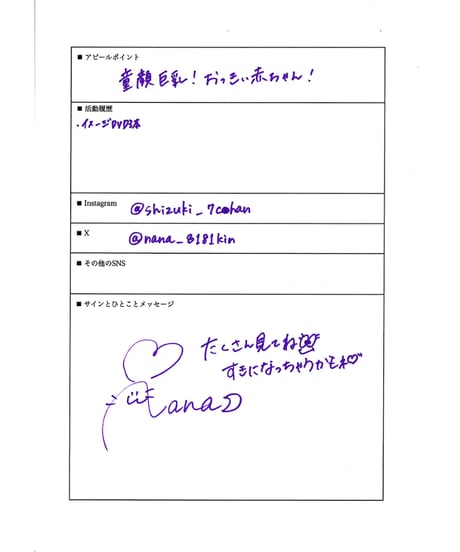 ■ アピールポイント
童顔巨乳！おっきい赤ちゃん！
■ 活動履歴
・イメージDVD3本
■ Instagram
@shizuki_7cohan
■ X
@nana_8181kin
■ その他のSNS
■ サインとひとことメッセージ
たくさん見てね
すきになっちゃうかもネ♡
nana